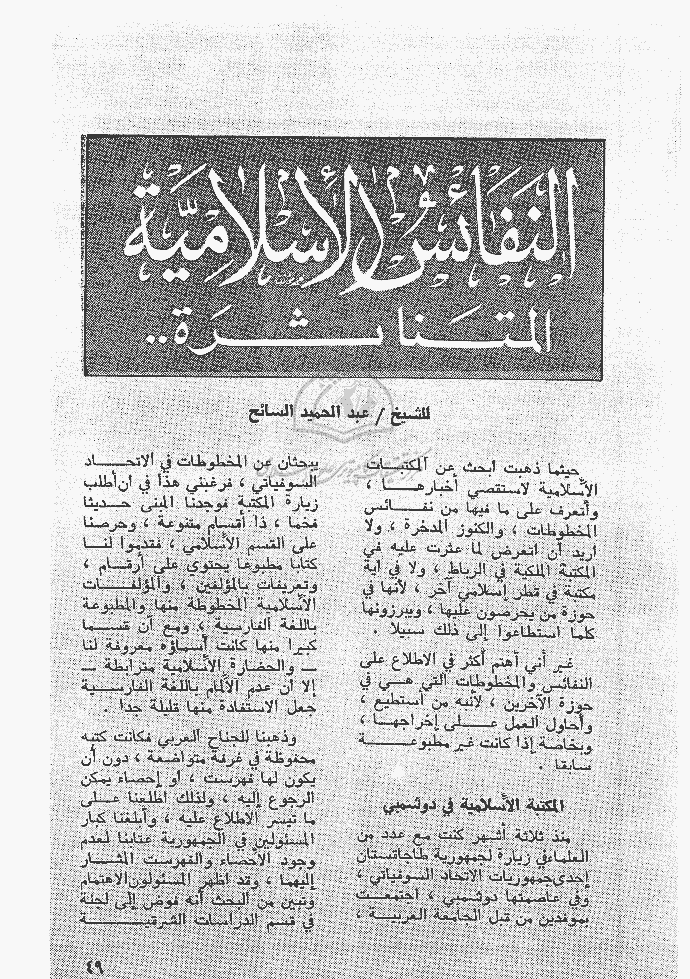 النفائس الإسلامية
المتناثرة..
للشيخ / عبد الحميد السائح
حيثما ذهبت ابحث عن المكتبات
الأسلامية لاستقصي أخبارها ،
وأتعرف على ما فيها من نفائس
المخطوطات ، والكنوز المدخرة ، ولا
اريد أن اتعرض لما عثرت عليه في
المكتبة الملكية في الرباط ، ولا في اية
مكتبة في قطر إسلامي آخر ، لأنها في
حوزة من يحرصون عليها ، ويبرزونها
كلما استطاعوا إلى ذلك سبيلا .
غير أني أهتم أكثر في الاطلاع على
النفائس والمخطوطات التي هي في
حوزة الآخرين ، لأنبه من أستطيع ،
وأحاول العمل على إخراجها ،
وبخاصة إذا كانت غير مطبوعة
سابقا .
المكتبة الأسلامية في دوشمبي
منذ ثلاثة أشهر كنت مع عدد من
العلماء في زيارة لجمهورية طاجاكستان
إحدى جمهوريات الاتحاد السوفياتي ،
وفي عاصمتها دوشمبي ، اجتمعت
بموفدين من قبل الجامعة العربية ،
يبحثان عن المخطوطات في الاتحاد
السوفياتي ، فرغبني هذا في ان أطلب
زيارة المكتبة فوجدنا المبنى حديثا
فخما ، ذا أقسام متنوعة ، وحرصنا
على القسم الأسلامي ، فقدموا لنا
كتابا مطبوعا يحتوي على أرقام ،
وتعريفات بالمؤلفين ، والمؤلفات
الأسلامية المخطوطة منها والمطبوعة
باللغة الفارسية ، ومع أن قسما
كبيرا منها كانت أسماؤه معروفة لنا
ــ والحضارة الأسلامية مترابطة ــ
إلا أن عدم الألمام باللغة الفارسية
جعل الاستفادة منها قليلة جدا .
وذهبنا للجناح العربي فكانت كتبه
محفوظة في غرفة متواضعة ، دون أن
يكون لها فهرست ، أو إحصاء يمكن
الرجوع إليه ، ولذلك اطلعنا على
ما تيسر الاطلاع عليه ، وأبلغنا كبار
المسئولين في الجمهورية عتابنا لعدم
وجود الأحصاء والفهرست المشار
إليهما ، وقد اظهر المسئولون الاهتمام
وتبين من البحث أنه فوض إلى لجنة
في قسم الدراسات الشرقية
٤٩